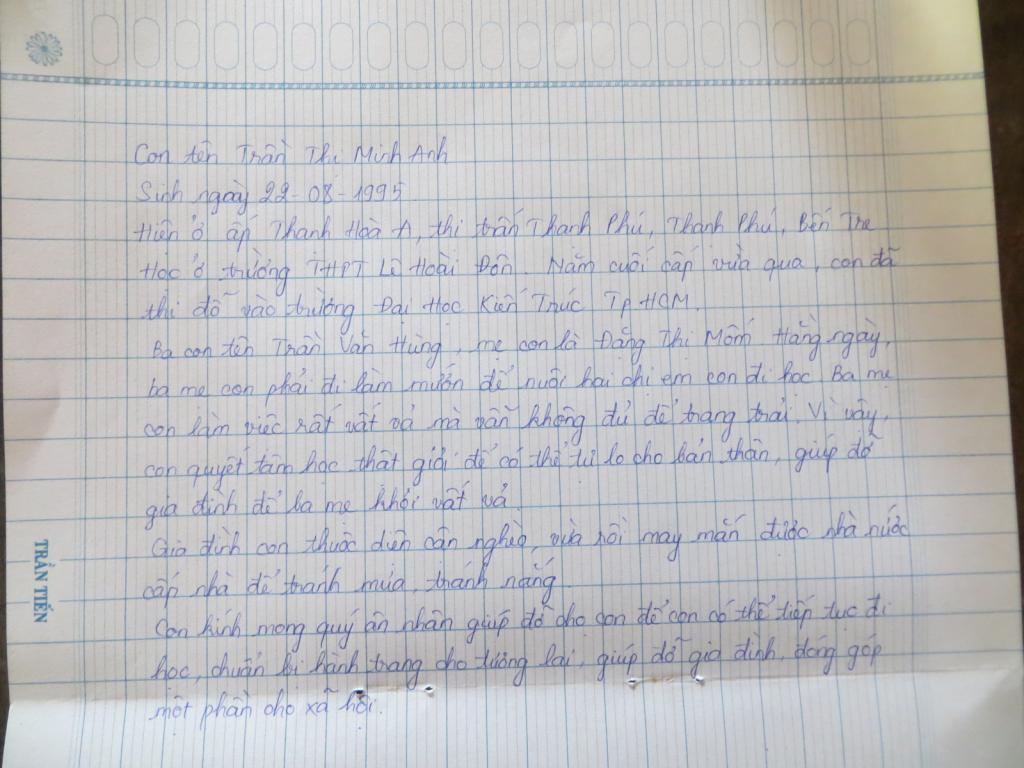 Con tên Trần Thị Minh Anh
Sinh ngày 22-08-1995
Hiện ở ấp Thạnh Hoà A, thị trấn Thạnh Phú, Thạnh Phú, Bến Tre
Học ở trường THPT Lê Hoài Đôn. Năm cuối cấp vừa qua, con đã
thi đỗ vào trường Đại Học Kiến Trúc Tp.HCM.
Ba con tên Trần Văn Hùng, mẹ con là Đặng Thị Mốm. Hằng ngày,
ba mẹ con phải đi làm mướn để nuôi hai chị em con đi học. Ba mẹ
con làm việc rất vất vả mà vẫn không đủ để trang trải. Vì vậy,
con quyết tâm học thật giỏi để có thể tự lo cho bản thân, giúp đỡ
gia đình để ba mẹ khỏi vất vả.
Gia đình con thuộc diện cận nghèo, vừa rồi may mắn được nhà nước
cấp nhà để tránh mưa, tránh nắng.
Con kính mong quý ân nhân giúp đỡ cho con để con có thể tiếp tục đi
học, chuẩn bị hành trang cho tương lai, giúp đỡ gia đình, đóng góp
một phần cho xã hội.
TRẦN TIẾN